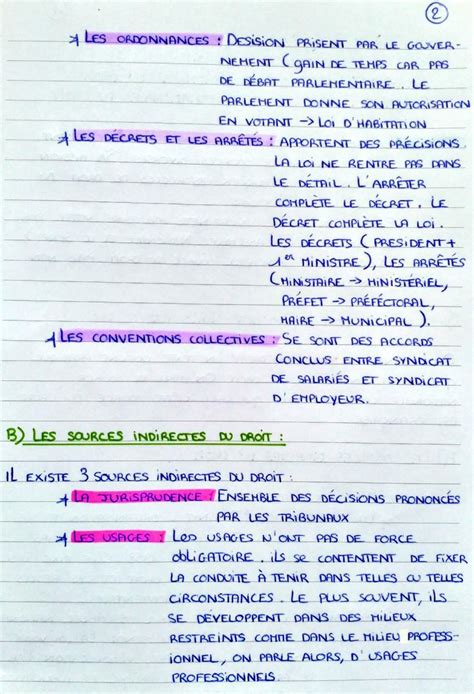 2
* LES ORDONNANCES : DESISION PRISENT PAR LE GOUVER-
NEMENT (GAIN DE TEMPS CAR PAS
DE DÉBAT PARLEMENTAIRE. LE
PARLEMENT DONNE SON AUTORISATION
EN VOTANT → LOI D'HABITATION
* LES DÉCRETS ET LES ARRÊTÉS : APPORTENT DES PRÉCISIONS.
LA LOI NE RENTRE PAS DANS
LE DÉTAIL. L'ARRÊTER
COMPLÈTE LE DÉCRET. LE
DÉCRET COMPLÈTE LA LOI.
LES DÉCRETS (PRESIDENT +
1er MINISTRE), LES ARRÊTÉS
(MINISTAIRE → MINISTÉRIEL,
PRÉFET → PRÉFÉCTORAL,
MAIRE → MUNICIPAL).
* LES CONVENTIONS COLLECTIVES : SE SONT DES ACCORDS
CONCLUS ENTRE SYNDICAT
DE SALARIÉS ET SYNDICAT
D'EMPLOYEUR.
B) LES SOURCES INDIRECTES DU DROIT :
IL EXISTE 3 SOURCES INDIRECTES DU DROIT :
* LA JURISPRUDENCE : ENSEMBLE DES DÉCISIONS PRONONCÉS
PAR LES TRIBUNAUX
* LES USAGES : LES USAGES N'ONT PAS DE FORCE
OBLIGATOIRE. ILS SE CONTENTENT DE FIXER
LA CONDUITE À TENIR DANS TELLES OU TELLES
CIRCONSTANCES. LE PLUS SOUVENT, ILS
SE DÉVELOPPENT DANS DES MILIEUX
RESTREINTS COMME DANS LE MILIEU PROFESS-
IONNEL, ON PARLE ALORS, D'USAGES
PROFESSIONNELS.